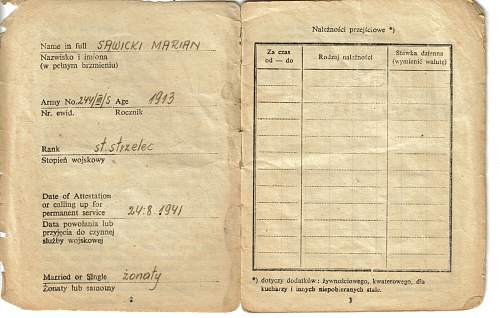 Name in full SAWICKI MARIAN
Nazwisko i imiona
(w pełnym brzmieniu)
Army No. 244/III/S Age 1913
Nr. ewid. Rocznik
Rank st. strzelec
Stopień wojskowy
Date of Attestation
or calling up for
permanent service 24.8.1941
Data powołania lub
przyjęcia do czynnej
służby wojskowej
Married or Single żonaty
Żonaty lub samotny
2
Należności przejściowe *)
Za czas
od — do
Rodzaj należności
Stawka dzienna
(wymienić walutę)
*) dotyczy dodatków: żywnościowego, kwaterowego, dla
kucharzy i innych niepobieranych stale.
3